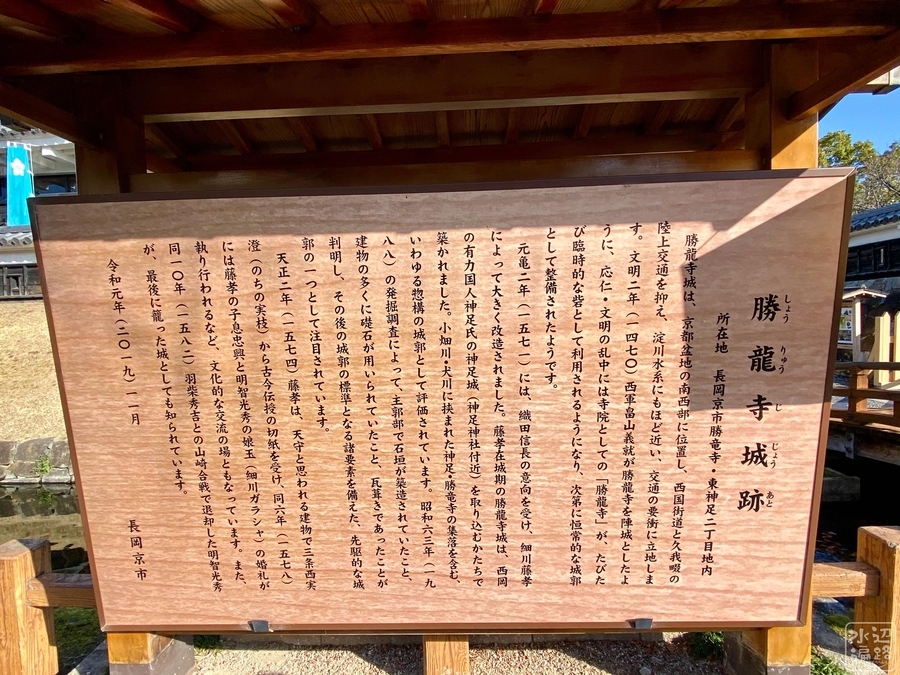 勝龍寺城跡
しょう りゅう じ じょう あと
所在地 長岡京市勝竜寺・東神足二丁目地内
勝龍寺城は、京都盆地の南西部に位置し、西国街道と久我畷の
陸上交通を抑え、淀川水系にもほど近い、交通の要衝に立地しま
す。文明二年(一四七〇)西軍畠山義就が勝龍寺を陣城としたよ
うに、応仁・文明の乱中には寺院としての「勝龍寺」が、たびた
び臨時的な砦として利用されるようになり、次第に恒常的な城郭
として整備されたようです。
元亀二年(一五七一)には、織田信長の意向を受け、細川藤孝
によって大きく改造されました。藤孝在城期の勝龍寺城は、西岡
の有力国人神足氏の神足城(神足神社付近)を取り込むかたちで
築かれました。小畑川・犬川に挟まれた神足・勝竜寺の集落を含む、
いわゆる惣構の城郭として評価されています。昭和六三年(一九
八八)の発掘調査によって、主郭部で石垣が築造されていたこと、
建物の多くに礎石が用いられていたこと、瓦葺きであったことが
判明し、その後の城郭の標準となる諸要素を備えた、先駆的な城
郭の一つとして注目されています。
天正二年(一五七四)藤孝は、天守と思われる建物で三条西実
澄(のちの実枝)から古今伝授の切紙を受け、同六年(一五七八)
には藤孝の子息忠興と明智光秀の娘玉(細川ガラシャ)の婚礼が
執り行われるなど、文化的な交流の場ともなっています。また、
同一〇年(一五八二)羽柴秀吉との山﨑合戦で退却した明智光秀
が、最後に籠った城としても知られています。
令和元年(二〇一九)一一月
長岡京市
水辺遍路